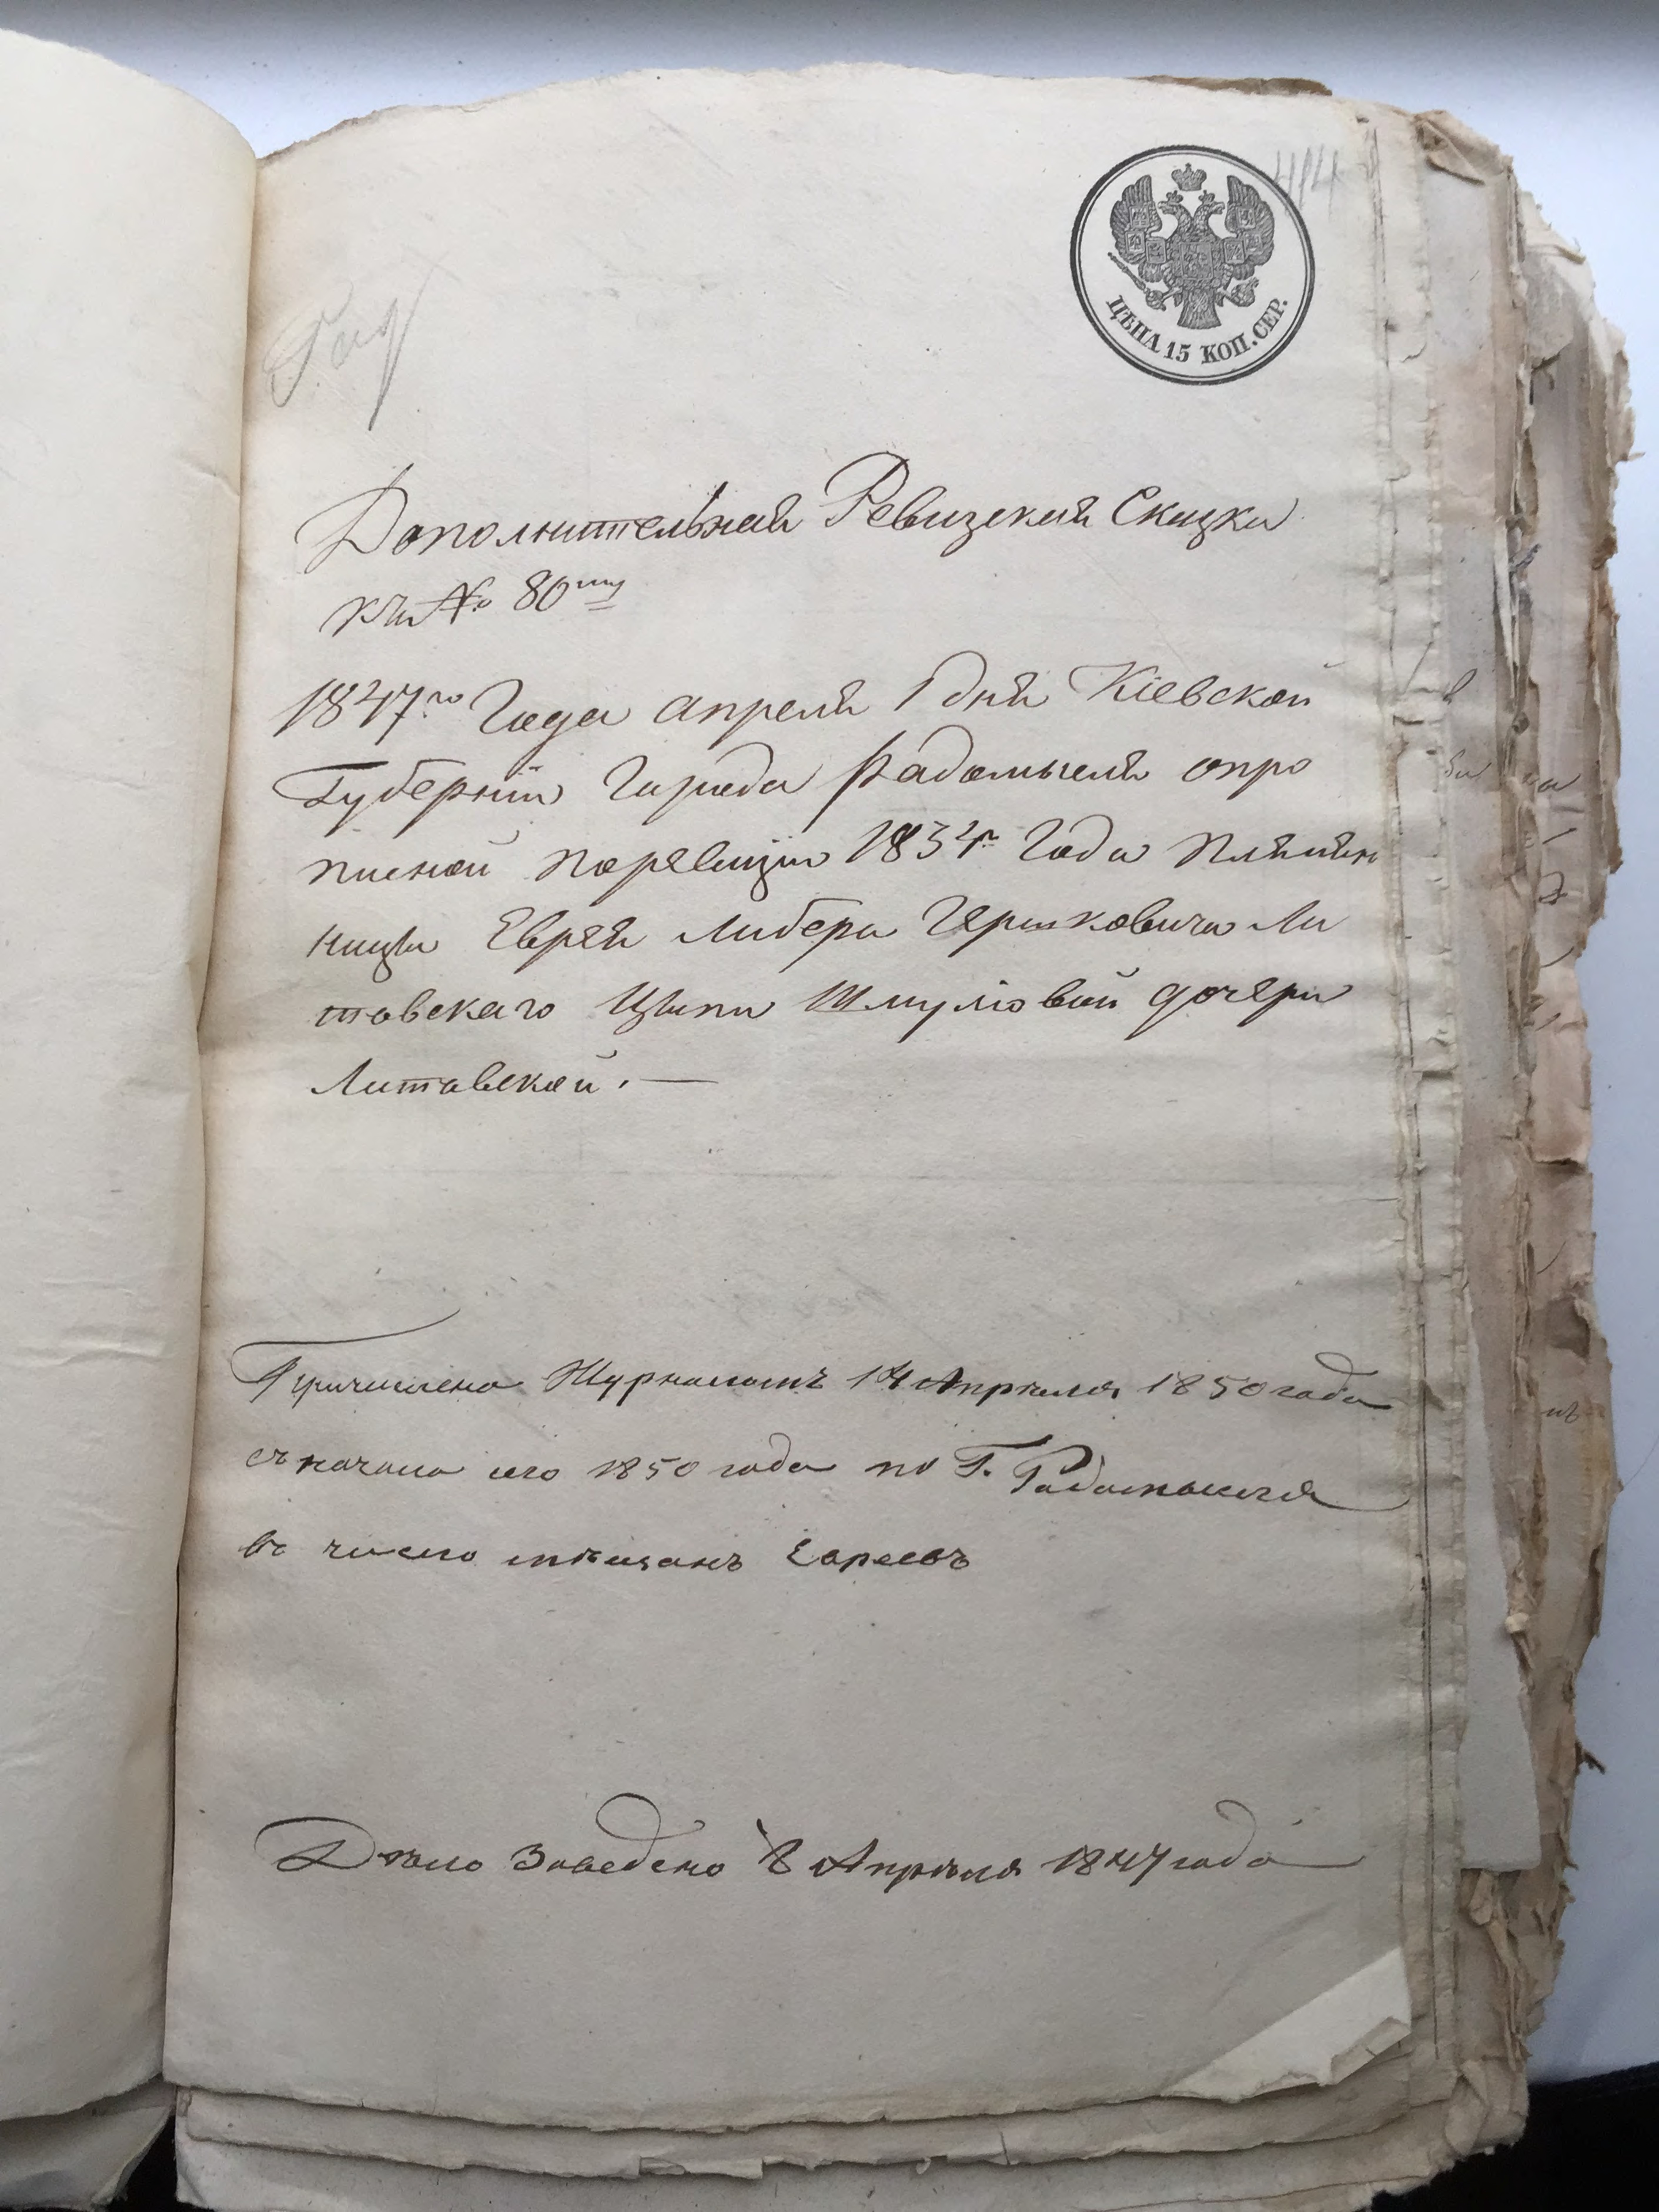 414
ЦѢНА 15 КОП. СЕР.
Рад
Дополнительная Ревизская Сказка
къ № 80му
1847го Года апреля 1 дня Кіевской
Губерніи Города Радомысля опро
писной поревизіи 1834г Года племян
ницы Еврея Либера Гершковича Ли
товскаго Ципи Шмулювой дочери
Литовской. —
Причислена Журналомъ 14 Апрѣля 1850 года
съ начала сего 1850 года по Г. Радомыслю
въ число мѣщанъ Евреевъ
Дѣло Заведено 8 Апрѣля 1847 года